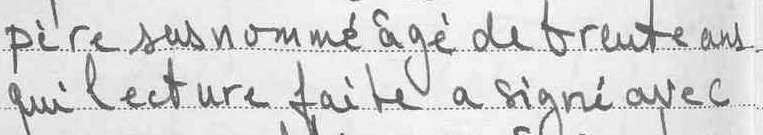 père susnommé âgé de trente ans
qui lecture faite a signé avec